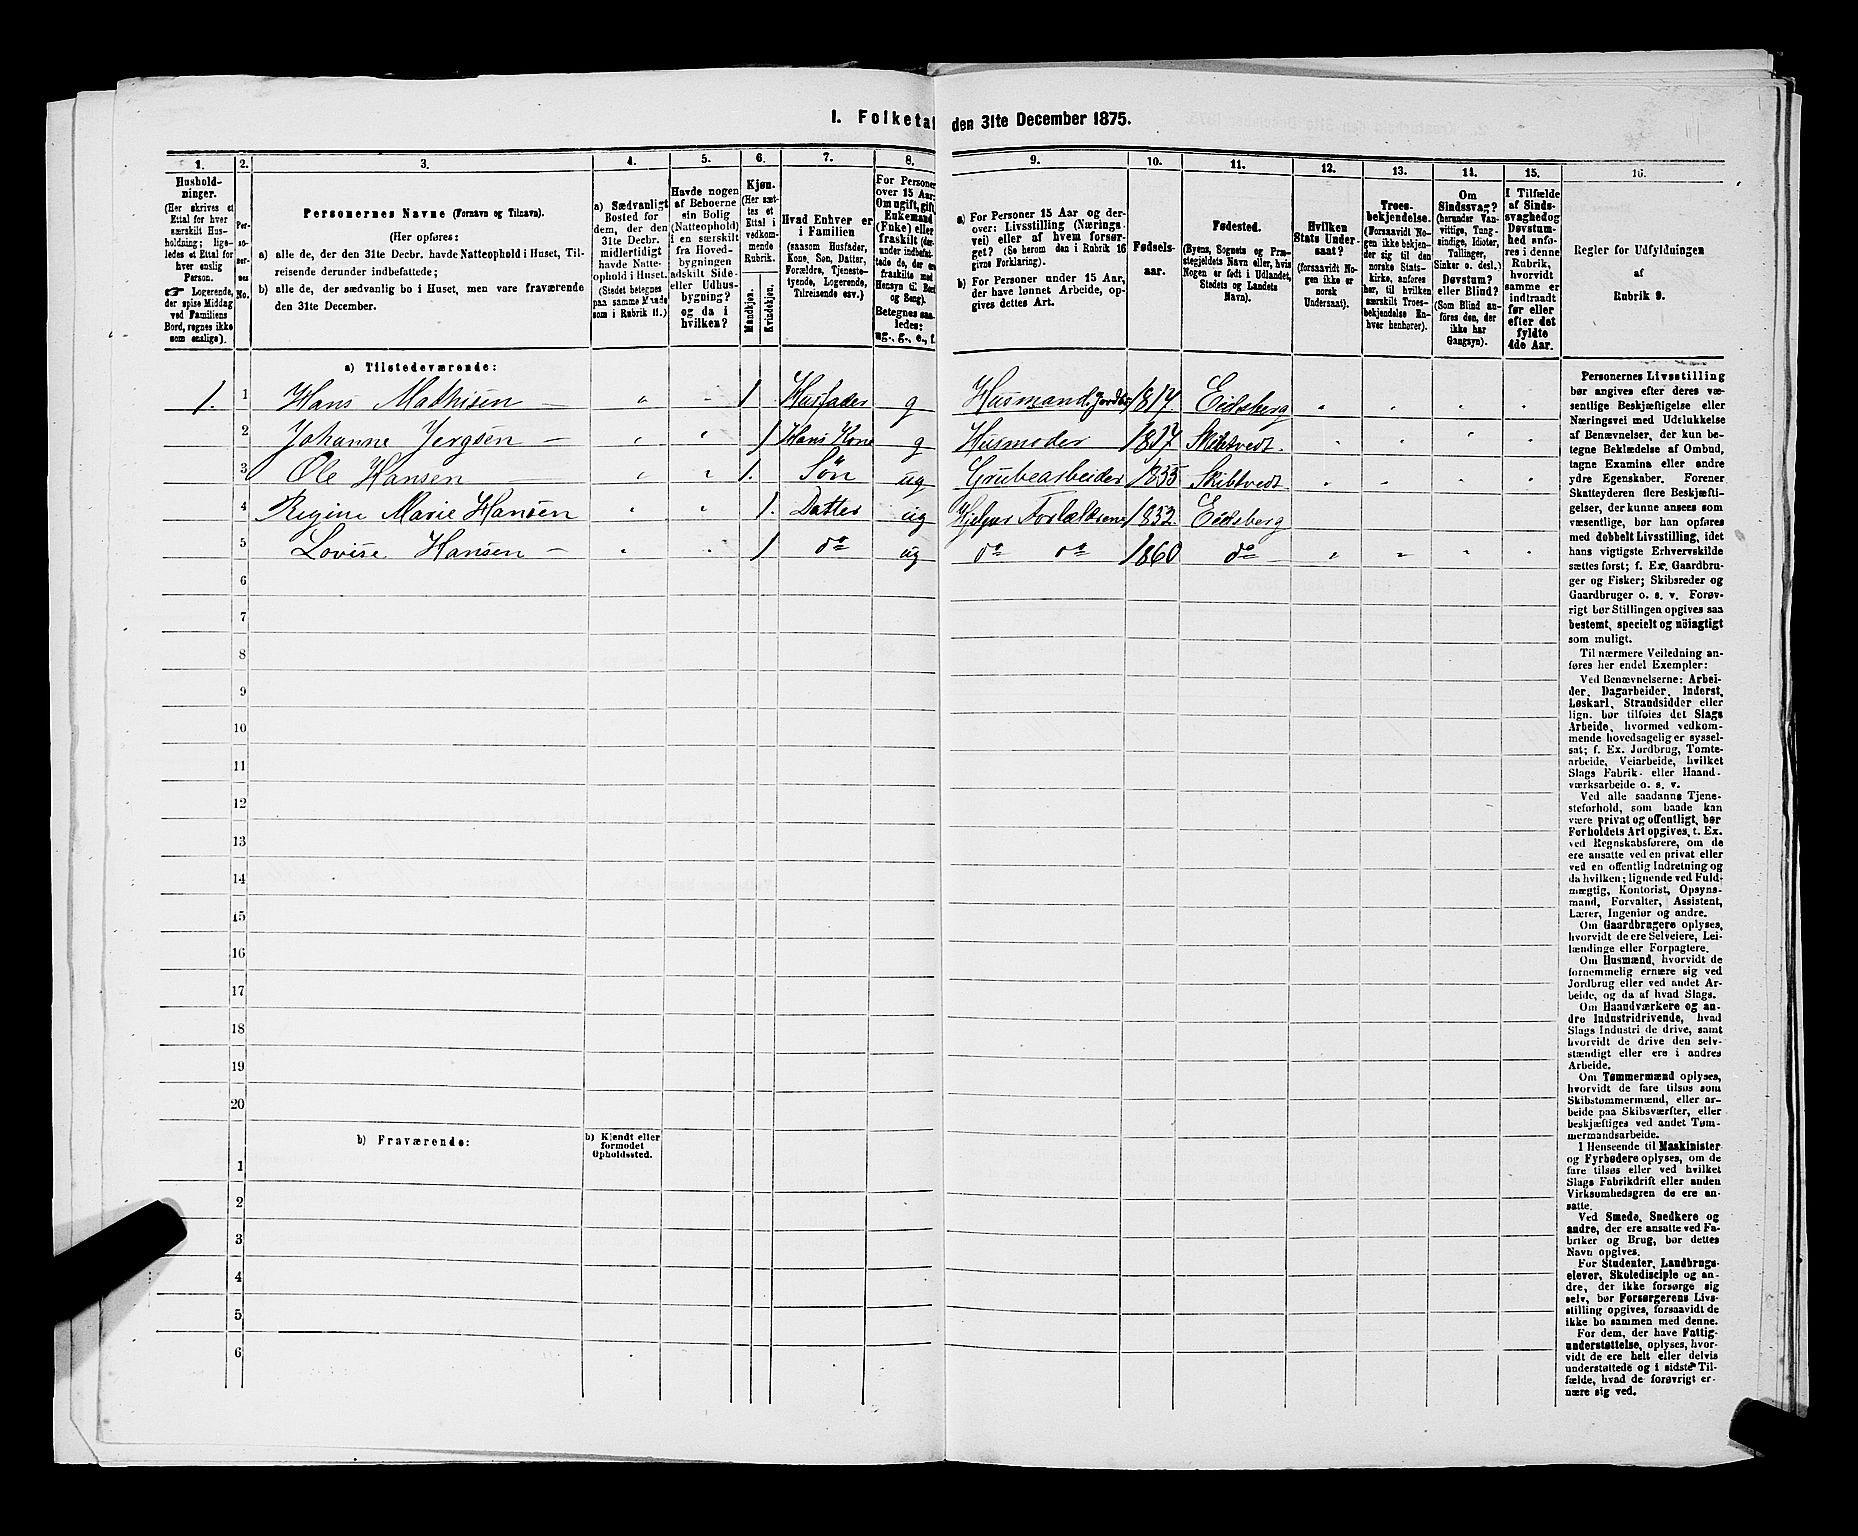 I. Folketal den 31te December 1875.
1. 2. 3. 4. 5. 6. 7. 8. 9. 10. 11. 12. 13. 14. 15. 16.
Husholdninger.
(Her skrives et
Ettal for hver
særskilt Husholdning; ligeledes et Ettal for
hver enslig
Person.
☛ Logerende,
der spise Middag
ved Familiens
Bord, regnes ikke
som enslige).
Personernes No.
Personernes Navne (Fornavn og Tilnavn).
(Her opføres:
a) alle de, der den 31te Decbr. havde Natteophold i Huset, Tilreisende derunder indbefattede;
b) alle de, der sædvanlig bo i Huset, men vare fraværende
den 31te December.
a) Sædvanligt
Bosted for
dem, der den
31te Decbr.
midlertidigt
havde Natteophold i Huset.
(Stedet betegnes
paa samme Maade
som i Rubrik 11.)
Havde nogen
af Beboerne
sin Bolig
(Natteophold)
i en særskilt
fra Hovedbygningen
adskilt Side- eller Udhusbygning?
og da i
hvilken?
Kjøn.
(Her sættes et
Ettal i
vedkommende
Rubrik.
Mandkjøn.
Kvindekjøn.
Hvad Enhver er
i Familien
(saasom Husfader,
Kone, Søn, Datter,
Forældre, Tjenestetyende, Logerende,
Tilreisende osv.)
For Personer
over 15 Aar:
Om ugift, gift,
Enkemand
(Enke) eller
fraskilt
Betegnes saaledes:
ug., g., e., f.
a) For Personer 15 Aar og derover: Livsstilling (Næringsvei) eller af hvem forsørget? (Se herom den i Rubrik 16
givne Forklaring).
b) For Personer under 15 Aar,
der have lønnet Arbeide, opgives dettes Art.
Fødselsaar.
Fødested.
(Byens, Sognets og Præstegjeldets Navn eller, hvis
Nogen er født i Udlandet,
Stedets og Landets
Navn).
Hvilken
Stats Undersaat?
(forsaavidt Nogen ikke er
norsk
Undersaat).
Troesbekjendelse.
(Forsaavidt Nogen ikke bekjender sig til den
norske Statskirke, anføres
her, til hvilken
særskilt Troesbekjendelse Enhver henhører).
Om
Sindssvag?
(herunder Vanvittige, Tungsindige, Idioter,
Tullinger,
Sinker o. desl.)
Døvstum?
eller Blind?
(Som Blind anføres den, der
ikke har
Gangsyn).
I Tilfælde
af Sindssvaghed og
Døvstumhed anføres i denne
Rubrik,
hvorvidt
samme er
indtraadt
før eller
efter det
fyldte
4de Aar.
Regler for Udfyldningen
af
Rubrik 9.
a) Tilstedeværende:
1. 1 Hans Mathisen — " - 1 Husfader g Husmand. Jordbr 1817 Eidsberg " " " "
2 Johanne Jergsen — " " 1 Hans Kone g Husmoder 1817 Skibtvedt. " " " "
3 Ole Hansen — " " 1. Søn ug Grubearbeider 1855 Skibtvedt " " " "
4 Regine Marie Hansen " " 1. Datter ug Hjelper Forældrene 1852. Eidsberg
5 Lovise Hansen — " " 1 do ug do do 1860 do " " " "
6
7
8
9
10
11
12
13
14
15
16
17
18
19
20
b) Fraværende:
b) Kjendt eller
formodet
Opholdssted.
1
2
3
4
5
6
Personernes Livsstilling
bør angives efter deres væsentlige Beskjæftigelse eller
Næringsvei med Udelukkelse
af Benævnelser, der kun betegne Beklædelse af Ombud,
tagne Examina eller andre
ydre Egenskaber. Forener
Skatteyderen flere Beskjæftigelser, der kunne ansees som
væsentlige, bør han opføres
med dobbelt Livsstilling, idet
hans vigtigste Erhvervskilde
sættes først; f. Ex. Gaardbruger og Fisker; Skibsreder og
Gaardbruger o. s. v. Forøvrigt bør Stillingen opgives saa
bestemt, specielt og nöiagtigt
som muligt.
Til nærmere Veiledning anføres her endel Exempler:
Ved Benævnelserne: Arbeider, Dagarbeider, Inderst,
Løskarl, Strandsidder eller
lign. bør tilføies det Slags
Arbeide, hvormed vedkommende hovedsagelig er sysselsat; f. Ex. Jordbrug, Tomtearbeide, Veiarbeide, hvilket
Slags Fabrik- eller Haandværksarbeide o. s. v.
Ved alle saadanne Tjenesteforhold, som baade kan
være privat og offentligt, bør
Forholdets Art opgives, t. Ex.
ved Regnskabsførere, om de
ere ansatte ved en privat eller
ved en offentlig Indretning og
da hvilken; lignende ved Fuldmægtig, Kontorist, Opsynsmand, Forvalter, Assistent,
Lærer, Ingeniør og andre.
Om Gaardbrugere oplyses,
hvorvidt de ere Selveiere, Leilændinge eller Forpagtere.
Om Husmænd, hvorvidt de
fornemmelig ernære sig ved
Jordbrug eller ved andet Arbeide, og da af hvad Slags.
Om Haandværkere og andre Industridrivende, hvad
Slags Industri de drive, samt
hvorvidt de drive den selvstændigt eller ere i andres
Arbeide.
Om Tømmermænd oplyses,
hvorvidt de fare tilsøs som
Skibstømmermænd, eller arbeide paa Skibsværfter, eller
beskjæftiges ved andet Tømmermandsarbeide.
I Henseende til Maskinister
og Fyrbødere oplyses, om de
fare tilsøs eller ved hvilket
Slags Fabrikdrift eller anden
Virksomhedsgren de ere ansatte.
Ved Smede, Snedkere og
andre, der ere ansatte ved Fabriker og Brug, bør dettes
Navn opgives.
For Studenter, Landbrugselever, Skoledisciple og andre, der ikke forsørge sig
selv, bør Forsørgerens Livsstilling opgives, forsaavidt de
ikke bo sammen med denne.
For dem, der have Fattigunderstøttelse, oplyses, hvorvidt de ere helt eller delvis
understøttede og i sidste Tilfælde, hvad de forøvrigt ernære sig ved.